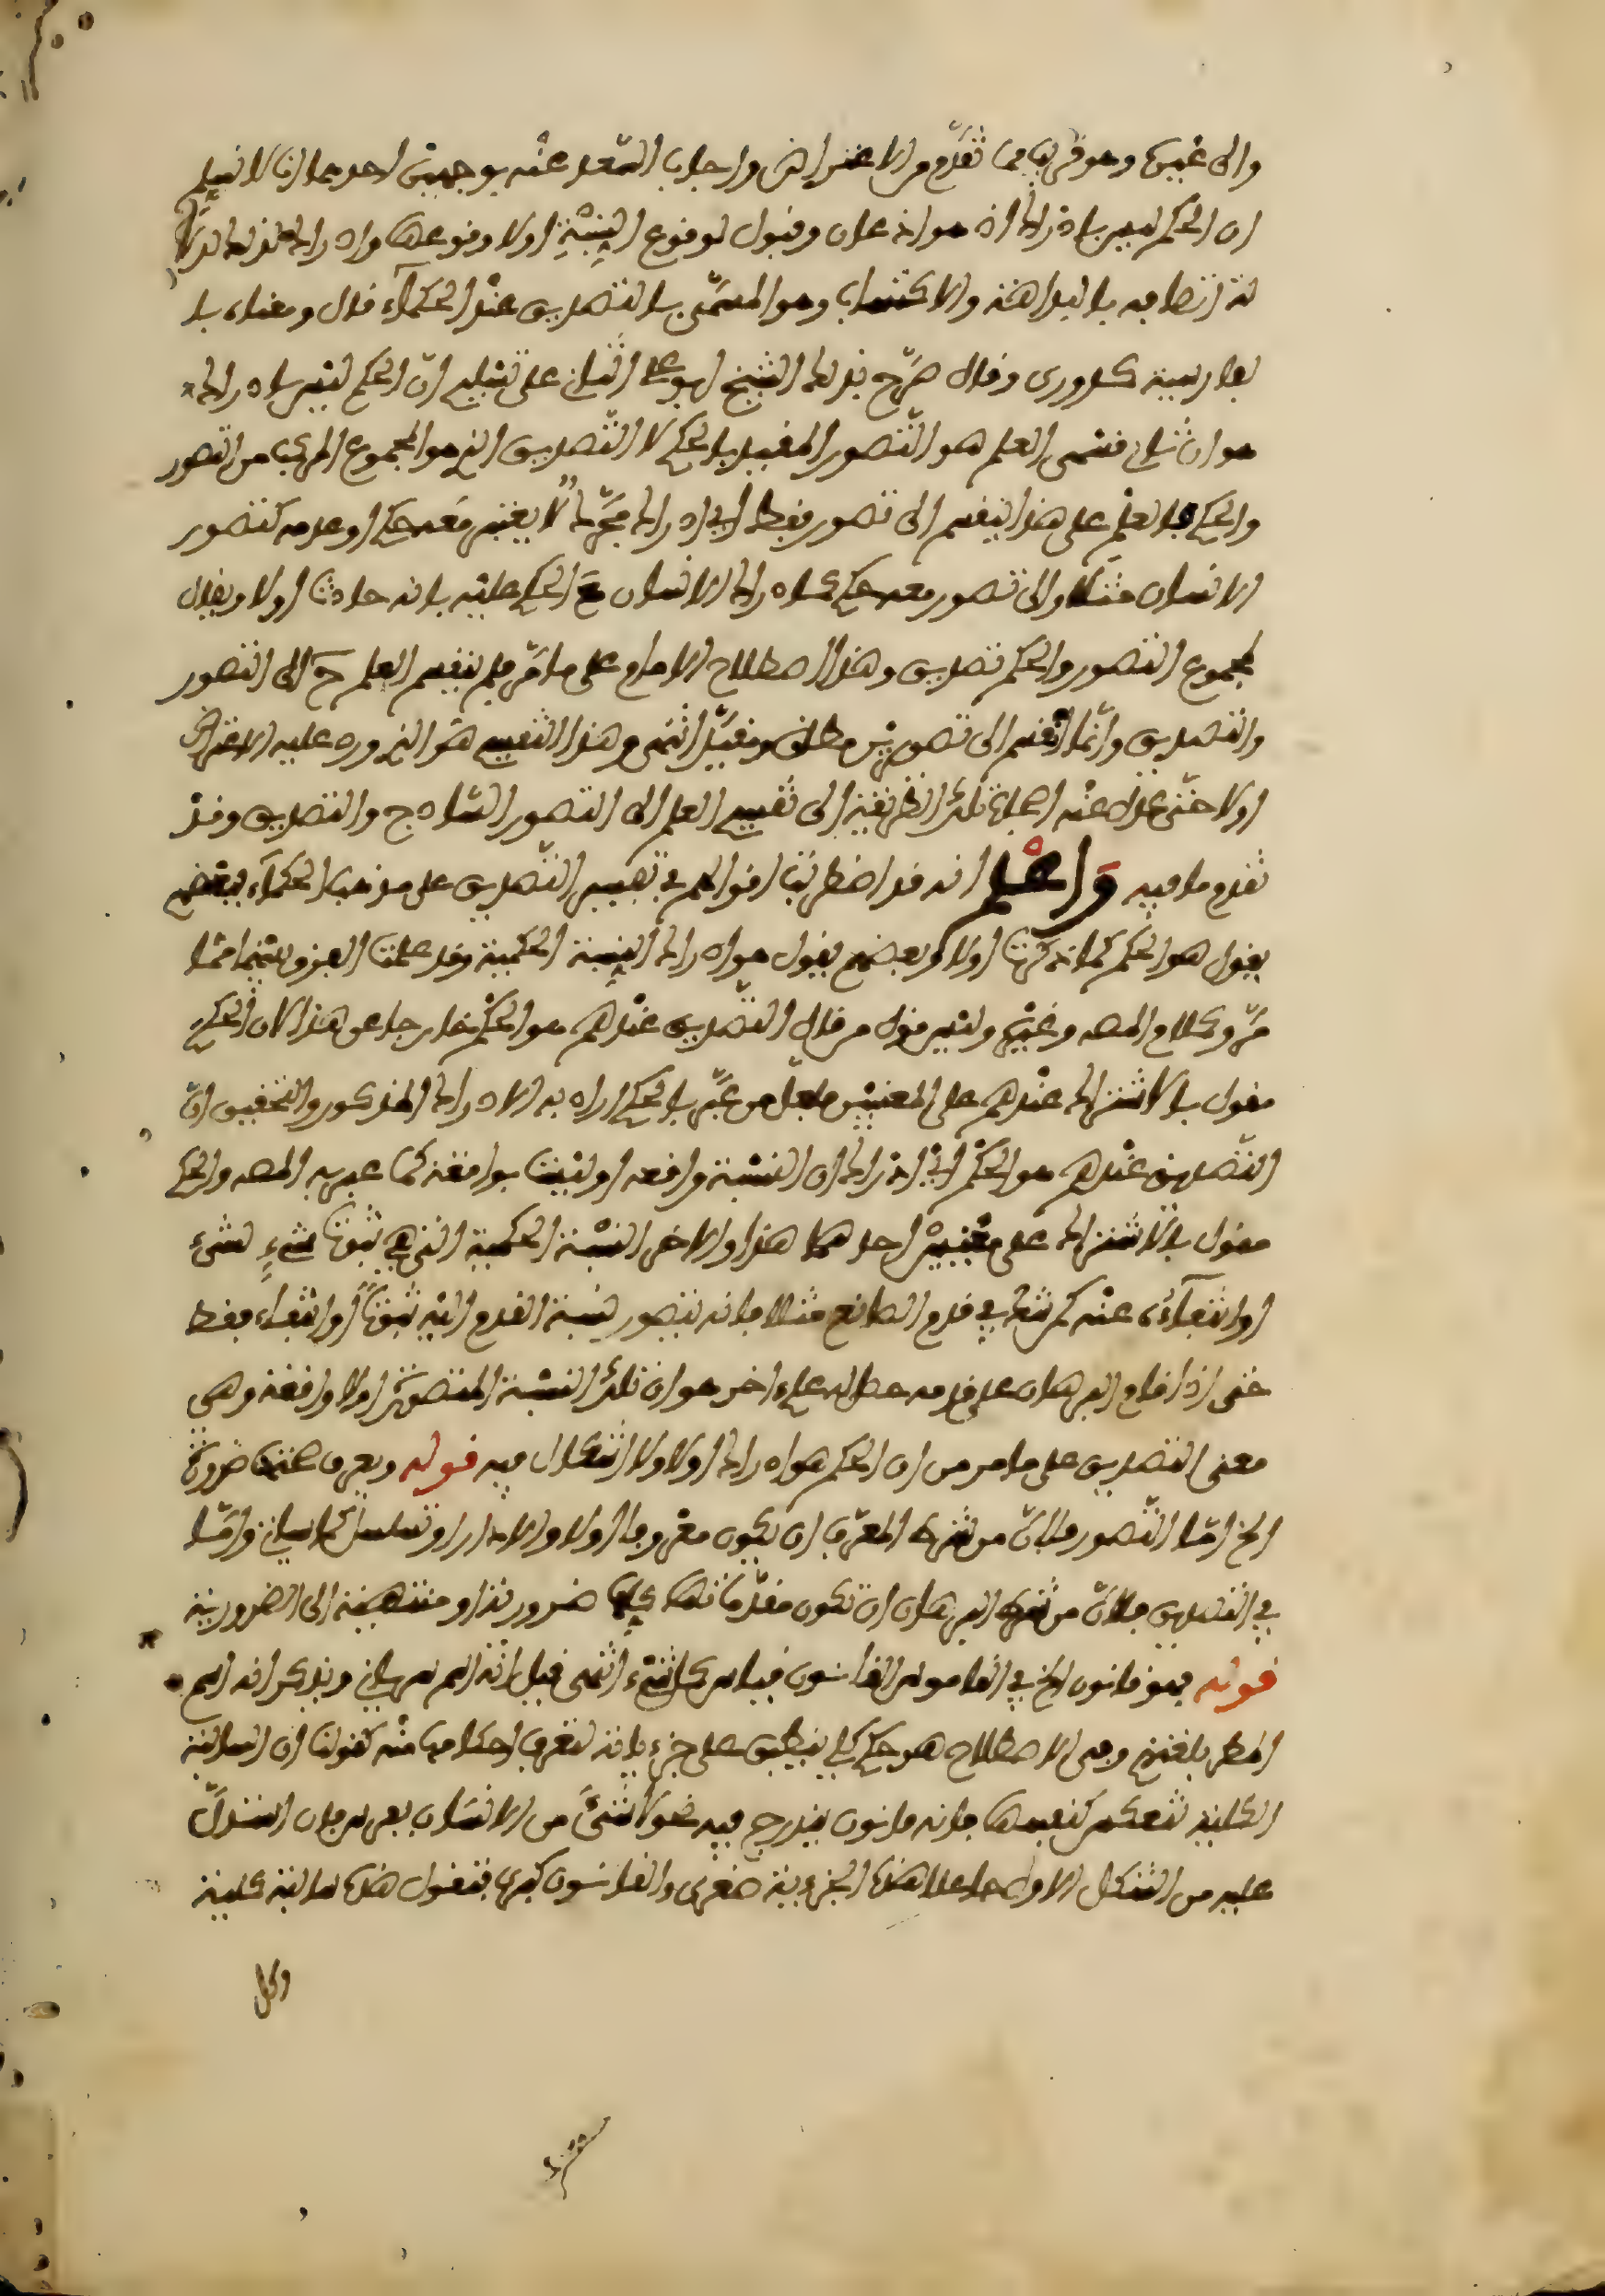 والى غيره وهو قريب مما تقدم من الاعتراض واجاب السعد عنه بوجهين احدهما انا لا نسلم
ان الحكم ليس بادراك اذ هو اذعان وقبول لوقوع النسبة اولا وقوعها وادراك لذلك
لاتصافه بالبداهة والاكتساب وهو المسمى بالتصديق عند الحكماء قال ومعناه بالـ
ـفارسية كرويدن وقال صرح بذلك الشيخ ابو علي الثاني على تسليم ان الحكم ليس بادراك
هو ان ثاني قسمي العلم هو التصور المقيد بالحكم لا التصديق الذي هو المجموع المركب من التصور
والحكم فالعلم على هذا ينقسم الى تصور فقط اي ادراك مجرد لا يعتبر معه حكم او عدمه كتصور
الانسان مثلا والى تصور معه حكم كادراك الانسان مع الحكم عليه بانه حادث اولا ويقال
لمجموع التصور والحكم تصديق وهذا اصطلاح الامام على ما مر فلم ينقسم العلم ح الى التصور
والتصديق وانما انقسم الى تصورين مطلق ومقيد انتهى وهذا التقسيم هو الذي ورد عليه الاعتراض
اولا حتى عدل عنه اصحاب تلك الطريقة الى تقسيم العلم الى التصور الساذج والتصديق وقد
تقدم ما فيه واعلم انه قد اضطربت اقوالهم في تفسير التصديق على مذهب الحكماء فبعضهم
يقول هو الحكم كما ذكرنا اولا وبعضهم يقول هو ادراك النسبة الحكمية وقد علمت الفرق بينهما مما
مر وكلام المصـ وغيره وليس قول من قال التصديق عندهم هو الحكم خارجا عن هذا لان الحكم
مقول بالاشتراك عندهم على المعنيين فلعل من عبر بالحكم اراد به الادراك المذكور والتحقيق ان
التصديق عندهم هو الحكم اي ادراك ان النسبة واقعة او ليست بواقعة كما عبر به المصـ والحكم
مقول بالاشتراك على معنيين احدهما هذا والاخر النسبة الحكمية التي هي ثبوت شيء لشيء
او انتفاؤه عنه كمن شك في قدم الصانع مثلا فانه يتصور نسبة القدم اليه ثبوتا او انتفاء فقط
حتى اذا اقام البرهان على قدمه حصل له علم اخر هو ان تلك النسبة المتصورة اولا واقعة وهي
معنى التصديق على ما مر من ان الحكم هو ادراك اولا ولا اشكال فيه قوله ويعرف ضرورة
الخ اما التصور فلان من شرط المعرف ان يكون معروفا اولا والا دار او تسلسل كما سياتي واما
في التصديق فلان من شرط البرهان ان تكون مقدماته كلها ضرورية او منتهية الى الضرورية
قوله فهو قانون الخ في القاموس القانون قياس كل شيء انتهى قيل انه اسم سرياني ويذكر انه اسم
المسطر بلغتهم وفي الاصطلاح هو حكم كلي ينطبق على جزئياته لتعرف احكامها منه كقولنا ان السالبة
الكلية تنعكس كنفسها فانه قانون يندرج فيه نحو لا شيء من الانسان بفرس فان استدل
عليه من الشكل الاول جاعلا هذه الجزئية صغرى والقانون كبرى فتقول هذه سالبة كلية
وكل